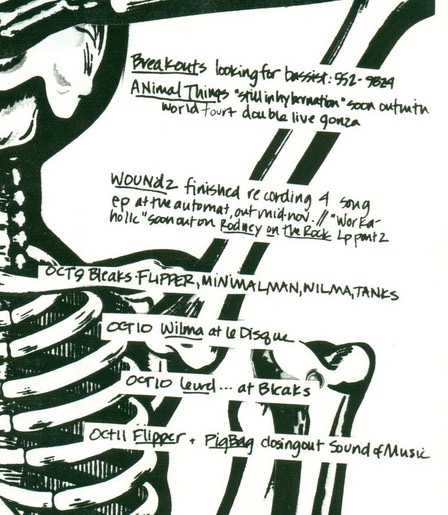 Breakouts looking for bassist: 552-9824
ANimal Things "still in hybernation" soon out with
world tour + double live gonza
WOUNDZ finished recording 4 song
ep at the automat, out mid nov. // "Worka-
holic" soon out on Rodney on the Rock Lp part 2
OCT 9 Bleaks·FLIPPER, MINIMAL MAN, WILMA, TANKS
OCT 10 Wilma at le Disque
OCT 10 Level... at Bleaks
OCT 11 Flipper + PigBag closing out Sound of Music